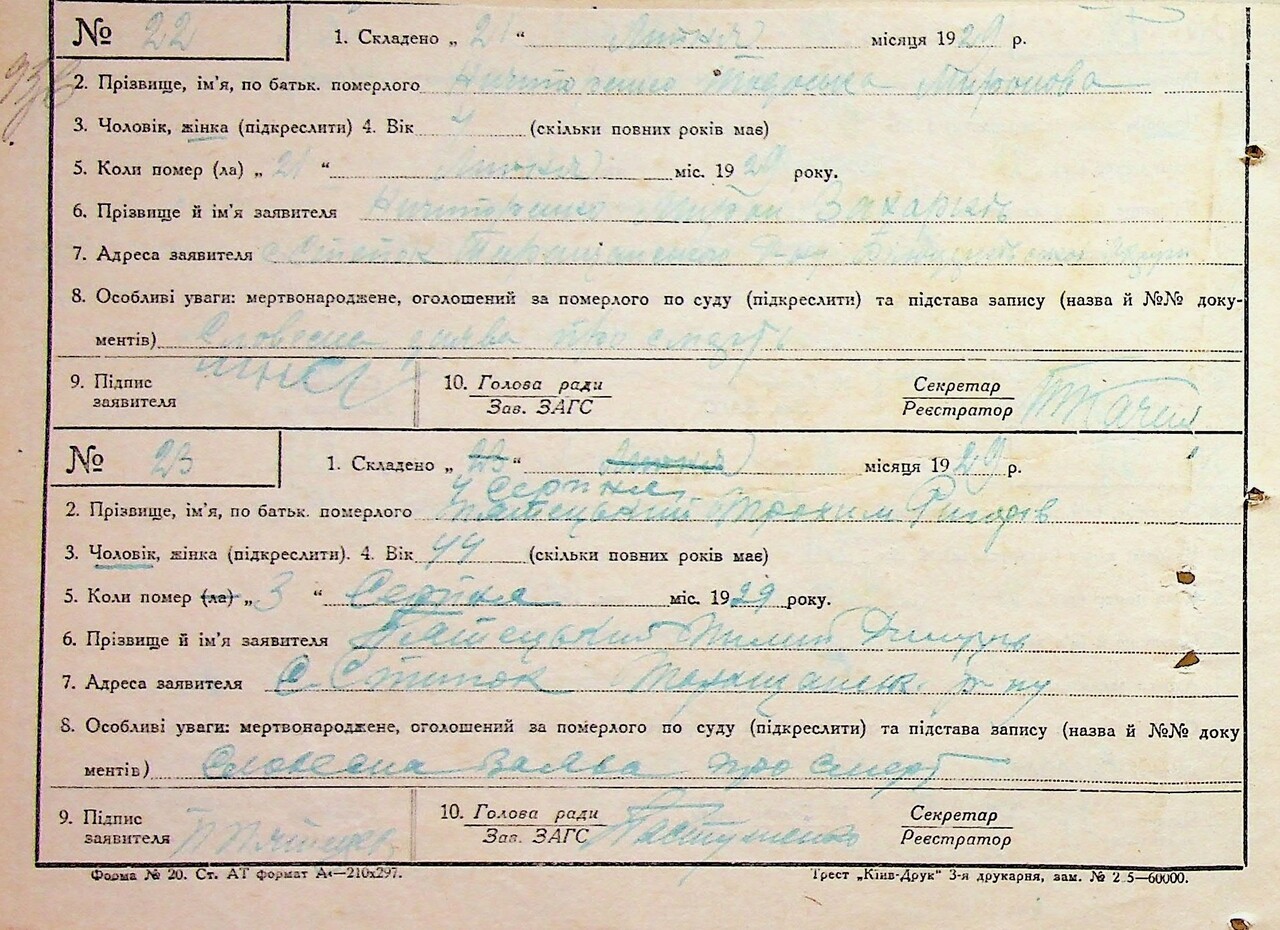 № 22 1. Складено „ 21 “ Липня місяця 1929 р.
2. Прізвище, ім'я, по батьк. померлого Ничипоренко Тодоська Миронова
3. Чоловік, жінка (підкреслити) 4. Вік (скільки повних років має)
5. Коли помер (ла) „ 21 “ Липня міс. 1929 року.
6. Прізвище й ім'я заявителя Ничипоренко Мирон Захарків
7. Адреса заявителя с. Степок Таращанського р-ну
8. Особливі уваги: мертвонароджене, оголошений за померлого по суду (підкреслити) та підстава запису (назва й №№ доку-
ментів) Словесна заява про смерть
9. Підпис 10. Голова ради Секретар
заявителя Зав. ЗАГС Реєстратор Ткачик
№ 23 1. Складено „ 23 “ Липня місяця 1929 р.
4 серпня
2. Прізвище, ім'я, по батьк. померлого Трохим
3. Чоловік, жінка (підкреслити). 4. Вік 44 (скільки повних років має)
5. Коли помер (ла) „ 3 “ Серпня міс. 1929 року.
6. Прізвище й ім'я заявителя Пилип
7. Адреса заявителя С. Степок Таращанськ. р-ну
8. Особливі уваги: мертвонароджене, оголошений за померлого по суду (підкреслити) та підстава запису (назва й №№ доку
ментів) Словесна Заява про смерт
9. Підпис 10. Голова ради Секретар
заявителя Зав. ЗАГС Пастушенко Реєстратор
Форма № 20. Ст. АТ формат А4—210х297. Трест „Київ-Друк“ 3-я друкарня, зам. № 2 5—60000.